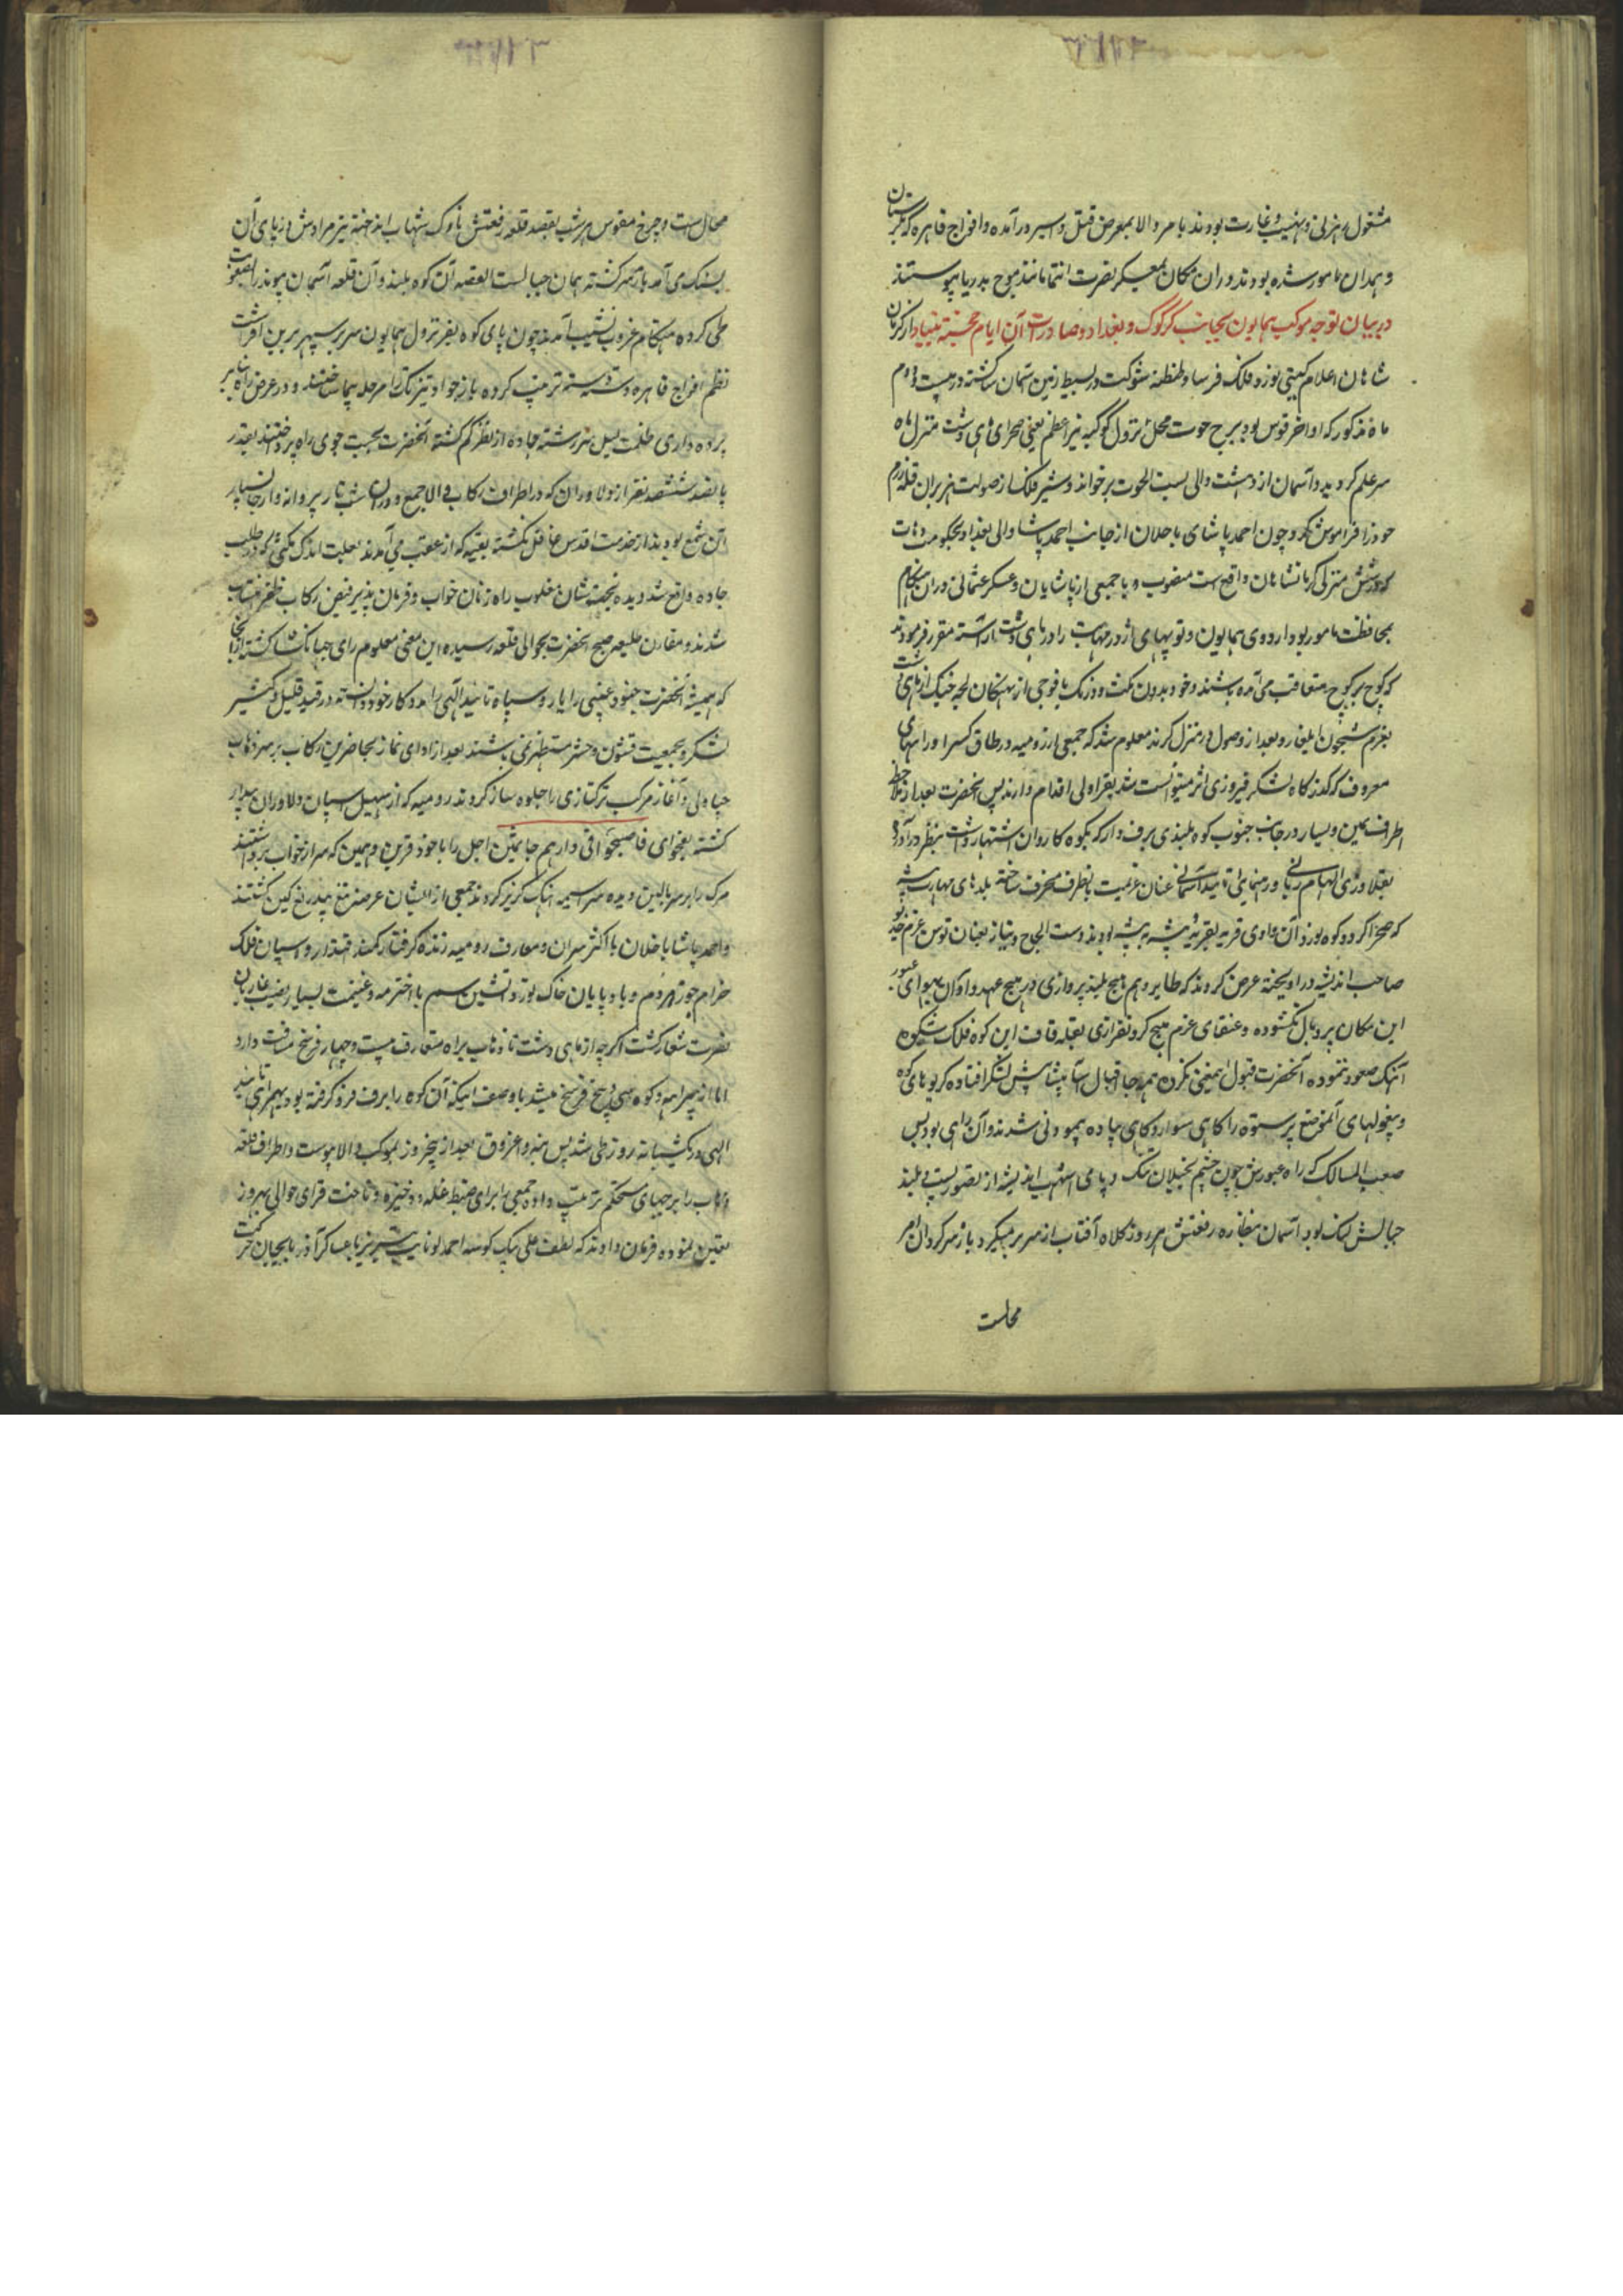 مشغول رهزنی و نهیب و غارت بودند بامر والا بمعرض قتل و اسیر در آمده و افواج قاهره که بکردستان
و همدان مامور شده بودند در ان مکان بمعسکر نصرت انتما مانند موج بدریا پیوستند
در بیان توجه موکب همایون بجانب کرکوک و بغداد و صادرات آن ایام خجسته بنیاد از کرمان
شاهان اعلام کیتی نورد فلک فرسا و طنطنه شوکت در بسیط زمین و زمان ساکشته در بیست و دوم
ماه مذکور که اواخر قوس بود برج حوت محل نزول کوکبه نیر اعظم یعنی صحرای ماهی دشت منزل ماه
سر علم کردید و آسمان از دهشت والی لست الحوت بر خواند و شیر فلک از صولت هزبران قله رزم
خود را فراموش کرد و چون احمد پاشای باجلان از جانب احمد پاشا والی بغداد بحکومت ذهاب
که در شش منزلی کرمانشاهان واقع است منصوب و با جمعی از پاشایان و عسکر عثمانی در ان هنکام
بمحافظت مامور بود اردوی همایون و توپهای اژدر مهابت را در ماهی دشت گذاشته مقرر فرمودند
که کوچ بر کوچ متعاقب می آمده باشند و خود بدون مکث و درنک با فوجی از نهنکان لجه جنک از ماهی دشت
بعزم شبیخون ایلغار و بعد از وصول در منزل کرند معلوم شد که جمعی از رومیه در طاق کسرا و راههای
معروف که گذرکاه لشکر فیروزی اثر میتوانست شد بقراولی اقدام دارند پس انحضرت بعد از ملاحظه
اطراف یمین و یسار در جانب جنوب کوه بلندی برف دار که بکوه کاروان اشتهار داشت بنظر در آورده
بقلاوزی الهام ربانی و رهنمایی تایید آسمانی عنان عزیمت بانطرف منحرف ساخته بلدهای مهارت پیشه
که صحرا کرد و کوه نورد آن وادی قریه بقریه و پیشه به پیشه بودند دست الحاح و نیاز بعنان توسن عزم خدیو
صاحب اندیشه در آویخته عرض کردند که طایر وهم هیچ بلند پروازی در هیچ عهد و اوان بهوای عبور
این مکان پر و بال نکشوده و عنقای عزم هیچ کردنفرازی بقله قاف این کوه فلک شکوه
آهنک صعود ننموده آنحضرت قبول اینمعنی نکرده همه جا اقبال آسا پیشاپیش لشکر افتاده کریوهای کوه
و بیغولهای آنموضع پر ستوه را کاهی سوار و کاهی پیاده پیمودنی شدند و آن راهی بود بس
صعب المسالک که راه عبورش چون چشم بخیلان تنک و پای اشهب اندیشه از تصور پست و بلند
جبالش لنک بود آسمان بنظاره رفعتش هر روز کلاه آفتاب از سر بر میگیرد باز سرکردان امر
محالست
محال ست و چرخ مقوس هر شب بقصد قلعه رفعتش ناوک شهاب انداخته تیر مرادش در پای آن
بسنک می آمد باز سرکشته همان جبالست القصه آن کوه بلند و آن قلعه آسمان پیوند را بصعوبت
طی کرده هنکام غروب بنشیب آمدند چون پای کوه بفر نزول همایون سر بر سپهر برین افراشت
نظم افواج قاهره دسته دسته ترتیب کرده باز جواد تیزتک را مرحله پیما ساختند و در عرض راه بنابر
پرده داری ظلمت لیل سر رشته جاده از نظر کم کشته آنحضرت بجست جوی راه پرداختند بقدر
پانصد ششصد نفر از دلاوران که در اطراف رکاب والا جمع و در ان شب تار پروانه وار جانسپار
ان شمع بودند از خدمت اقدس غافل نکشته بقیه که از عقب می آمدند بعلت اندک مکثی که در طلب
جاده واقع شد دیده بختشان مغلوب راهزنان خواب و فرمان پذیر فیض رکاب ظفر انتساب
شدند و مقارن طلیعه صبح انحضرت بحوالی قلعه رسیده این معنی معلوم رای جهانکشا کشته از آنجا
که همیشه آنحضرت جنود غیبی را یار و سپاه تایید الهی را مددکار خود دانسته در قید قلیل و کثیر
لشکر و بجمعیت قشون و حشر مستظهر نمی باشند بعد از ادای نماز با حاضرین رکاب بر سر ذهاب
چپاولی و آغاز مرکب ترکتازی را جلوه ساز کردند رومیه که از سهیل اسپان دلاوران بیدار
کشته بفحوای فاصبحوا فی دارهم جاثمین اجل را با خود قرین و همین که سر از خواب برداشتند
مرک را بر سر بالین دیده سراسیمه آهنک کریز کردند جمعی از ایشان عرصه تیغ بیدریغ کین کشتند
و احمد پاشا باجلان با اکثر سران و معارف رومیه زنده گرفتار کمند اقتدار و اسپان فلک
خرام جوزا دم و باد پایان خاک نورد آتشین سم با اخترمه و غنیمت بسیار نصیب غازیان
نصرت شعار کشت اکرچه از ماهی دشت تا ذهاب براه متعارف بیست و چهار فرسخ مسافت دارد
اما از بیراهه و کوه سی و پنج فرسخ میشد با وصف اینکه آن کوه را برف فرو کرفته بود بهمراهی تایید
الهی در یکشبانه روز طی شد پس بنه و اغروق بعد از پنجروز بموکب والا پیوست و اطراف قلعه
ذهاب را برجهای مستحکم ترتیب داده جمعی را برای ضبط غله و ذخیره و تاخت قرای حوالی بهروز
تعیین نموده فرمان دادند که لطف علی بیک کوسه احمدلو نایب تبریز با عساکر آذربایجان حرکت